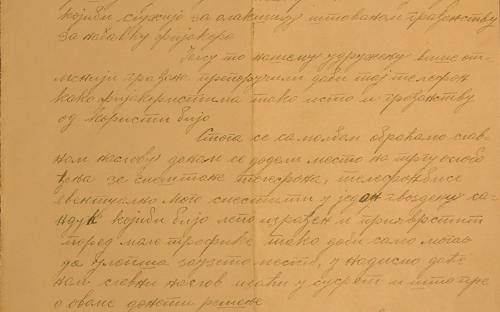 којиби служио за олакшицу штованом грађанству
за набавку фијакера
Јесу то нашему удружену више от-
менији грађана препоручили даби тај телефон
како фијакеристима тако исто и грађанству
од користи био
Стога се са молбом обраћамо слав-
ном наслову да нам се додели место на тргу осло
ђена за телефона, телефон би се
евентуално мого сместити у један гвоздени са-
ндук којиби био лепо израђен и причврстит
поред мале трафике тако даби само могао
да улепша заузето место, у надисмо даће
нам славни наслов изаћи у сусрет и што пре
о овоме донети решење